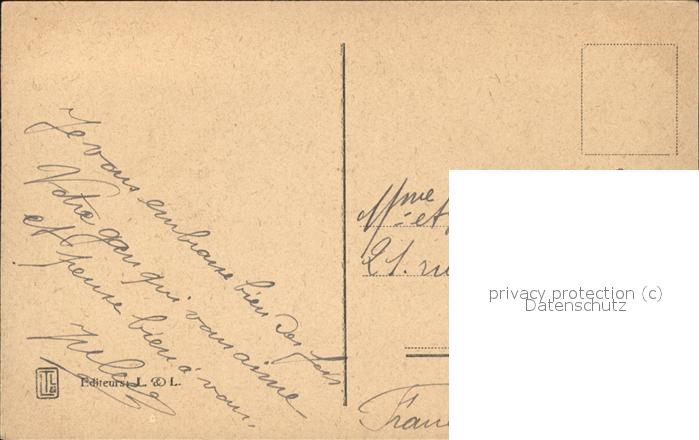 Je vous embrasse bien des fois
Votre gas qui vous aime
et pense bien à vous.
Editeurs: L. & L.
Mme
et
21. ru
Fran
privacy protection (c)
Datenschutz